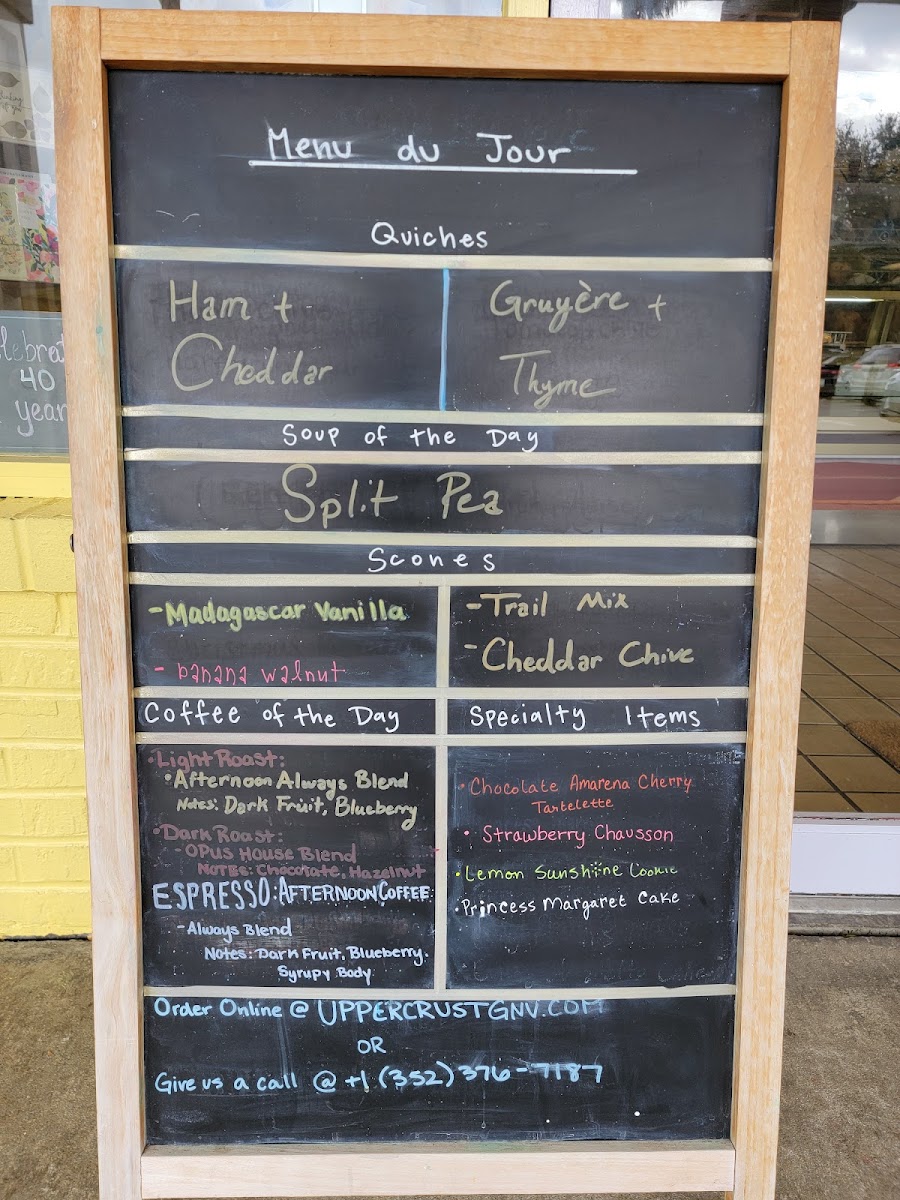 Menu du Jour
Quiches
Ham +
Cheddar
Gruyère +
Thyme
Soup of the Day
Split Pea
Scones
- Madagascar Vanilla
- banana walnut
- Trail Mix
- Cheddar Chive
Coffee of the Day
• Light Roast:
• Afternoon Always Blend
Notes: Dark Fruit, Blueberry
• Dark Roast:
- OPUS House Blend
Notes: Chocolate, Hazelnut
ESPRESSO: AFTERNOON COFFEE
- Always Blend
Notes: Dark Fruit, Blueberry.
Syrupy Body
Specialty Items
• Chocolate Amarena Cherry
Tartelette
• Strawberry Chausson
• Lemon Sunshine Cookie
• Princess Margaret Cake
Order Online @ UPPERCRUSTGNV.COM
OR
Give us a call @ +1 (352) 376-7187
40